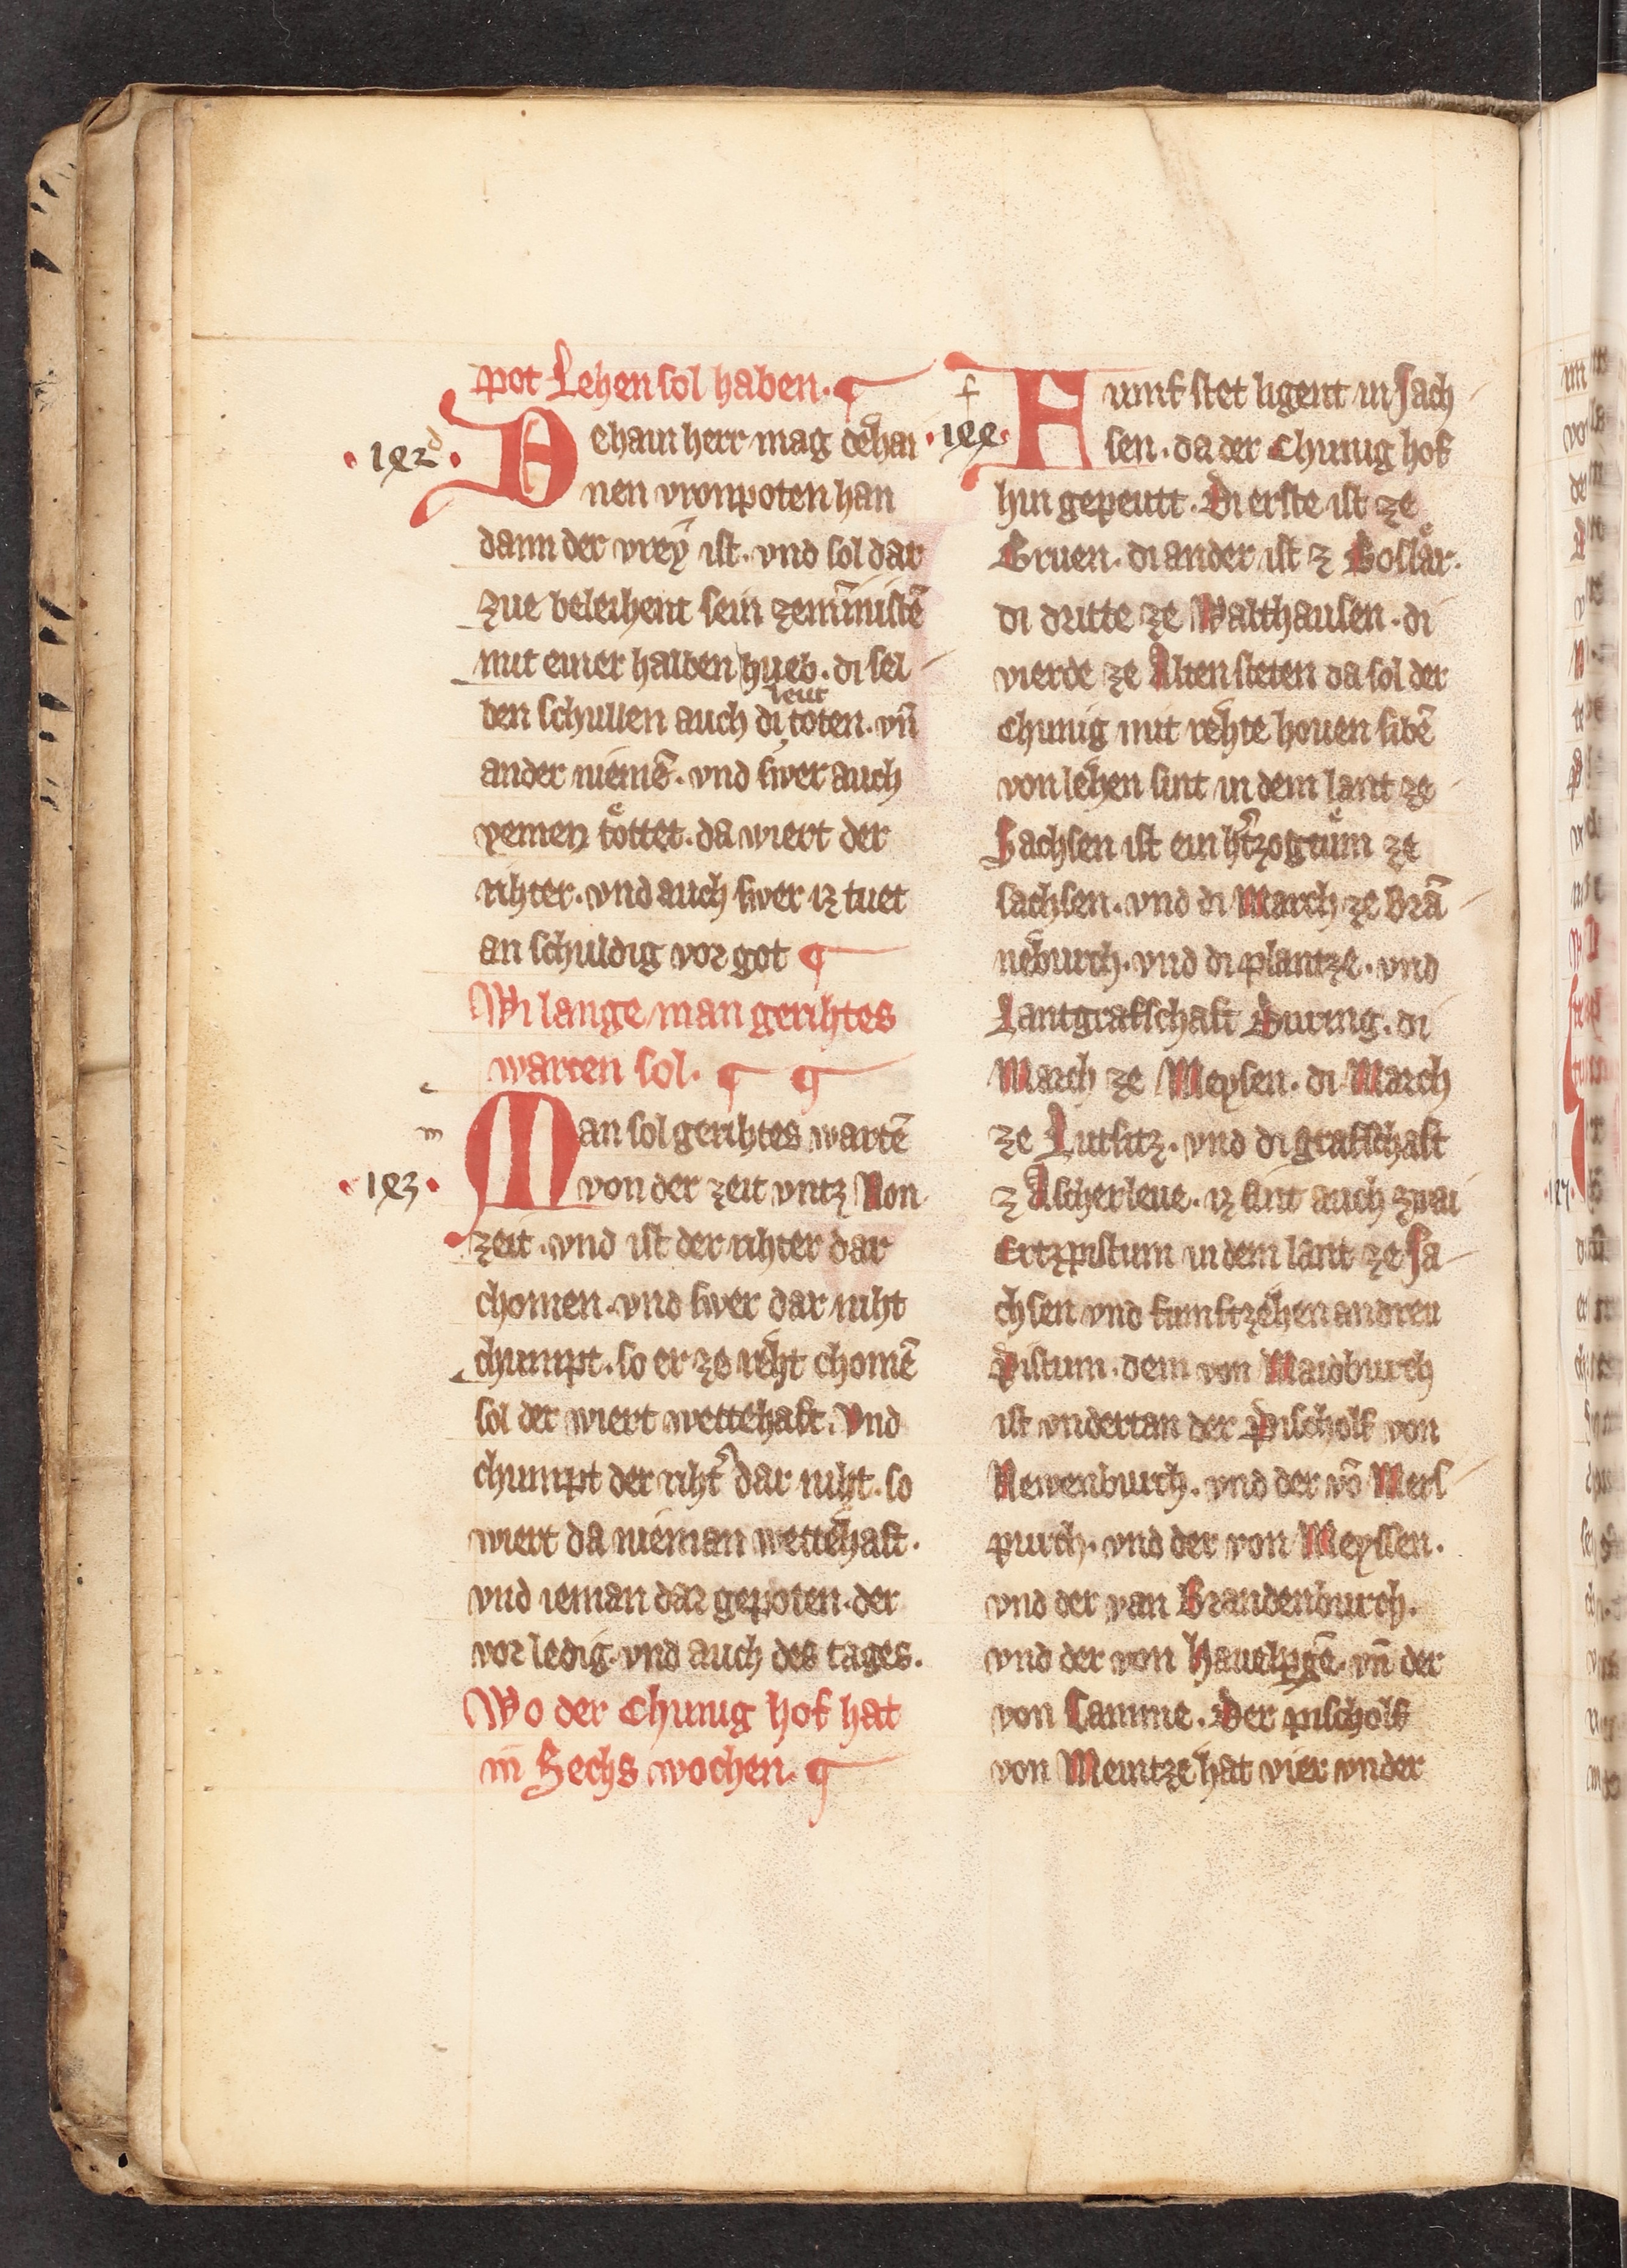 pot Lehen sol haben.
·142·
Dehain herr mag dehai
nen vronpoten han
dann der vrey ist. vnd sol dar
zue belehent sein zeminnistē
mit einer halben hueb. di sel
leut
ben schullen auch di toten. vn̄
ander niemē. vnd swer auch
yemen toͤttet. da wiert der
rihter. vnd auch swer iz tuet
an schuldig vor got
Wi lange man gerihtes
warten sol.
Man sol gerihtes wartē
·143·
von der zeit vntz Non
zeit. vnd ist der rihter dar
chomen. vnd swer dar niht
chumpt. so er ze reht chomē
sol der wiert wettehaft. Vnd
chumpt der riht᷑ dar niht. so
wiert da nieman wettehaft.
vnd ieman dar gepoten. der
vor ledig. vnd auch des tages.
Wo der Chunig hof hat
in Sechs wochen.
f
·144·
Fumf stet ligent in Sach
sen. da der Chunig hof
hin gepeutt. Di erste ist ze
Gruen. di ander ist z Goslaͤr.
di dritte ze Walthausen. di
vierde ze Alten steten da sol der
Chunig mit rehte houen sibē
von lehen sint in dem lant ze
Sachsen ist ein h᷑tzogtuͤm ze
sachsen. vnd di March ze Brā
neburch. vnd di plantze. vnd
Lantgrafschaft During. di
March ze Meysen. di March
ze Lutsitz. vnd di grafschaft
z Ascherleue. iz sint auch zwai
Ertzpistum in dem lant ze Sa
chsen vnd fumftzehen andreu
Pistum. dem von Maidburch
ist vndertan der Pischolf von
Newenburch. vnd der vō Mers
purch. vnd der von Meyssen.
vnd der van Brandenburch.
vnd der von Hauelpgē. vn̄ der
von Camme. Der pischolf
von Meintze hat vier vnder